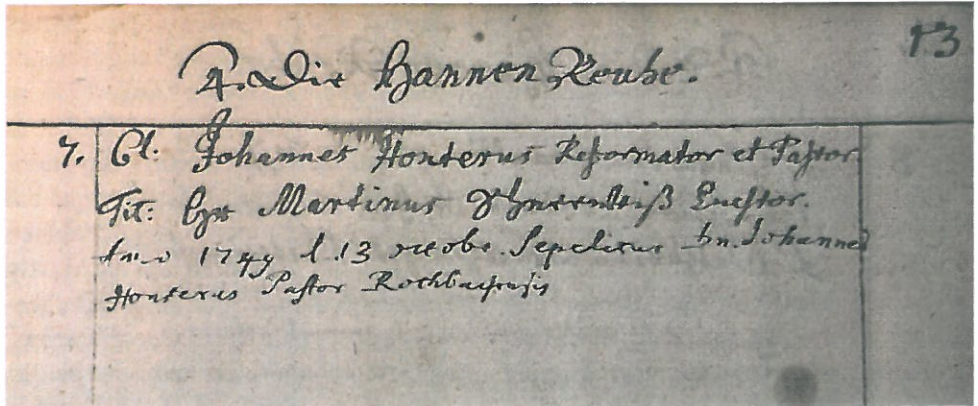 13
4. Die Hannen Reube.
7. Cl: Johannes Honterus Reformator et Pastor.
Tit: Hr Martinus Schneeweiß Questor.
Anno 1749 d. 13 octobr. Sepelitus Johannes
Honterus Pastor Rothbachensis